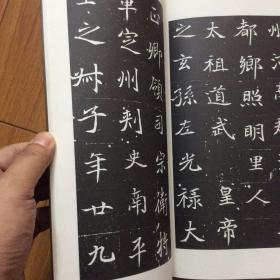 州河南
都鄉照明里人
太祖道武皇帝
之玄孫左光祿大
正卿領司宗衛將
軍定州刺史南平
王之叔子年廿九